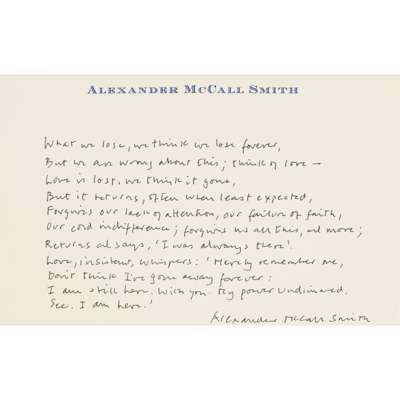 ALEXANDER MCCALL SMITH
What we lose, we think we lose forever,
But we are wrong about this; think of love –
Love is lost, we think it gone,
But it returns, often when least expected,
Forgives our lack of attention, our failure of faith,
Our cold indifference; forgives us all this, and more;
Returns and says, 'I was always there'.
Love, insistent, whispers: 'Merely remember me,
Don't think I've gone away forever:
I am still here. With you. My power undimmed.
See. I am here.'
Alexander McCall Smith